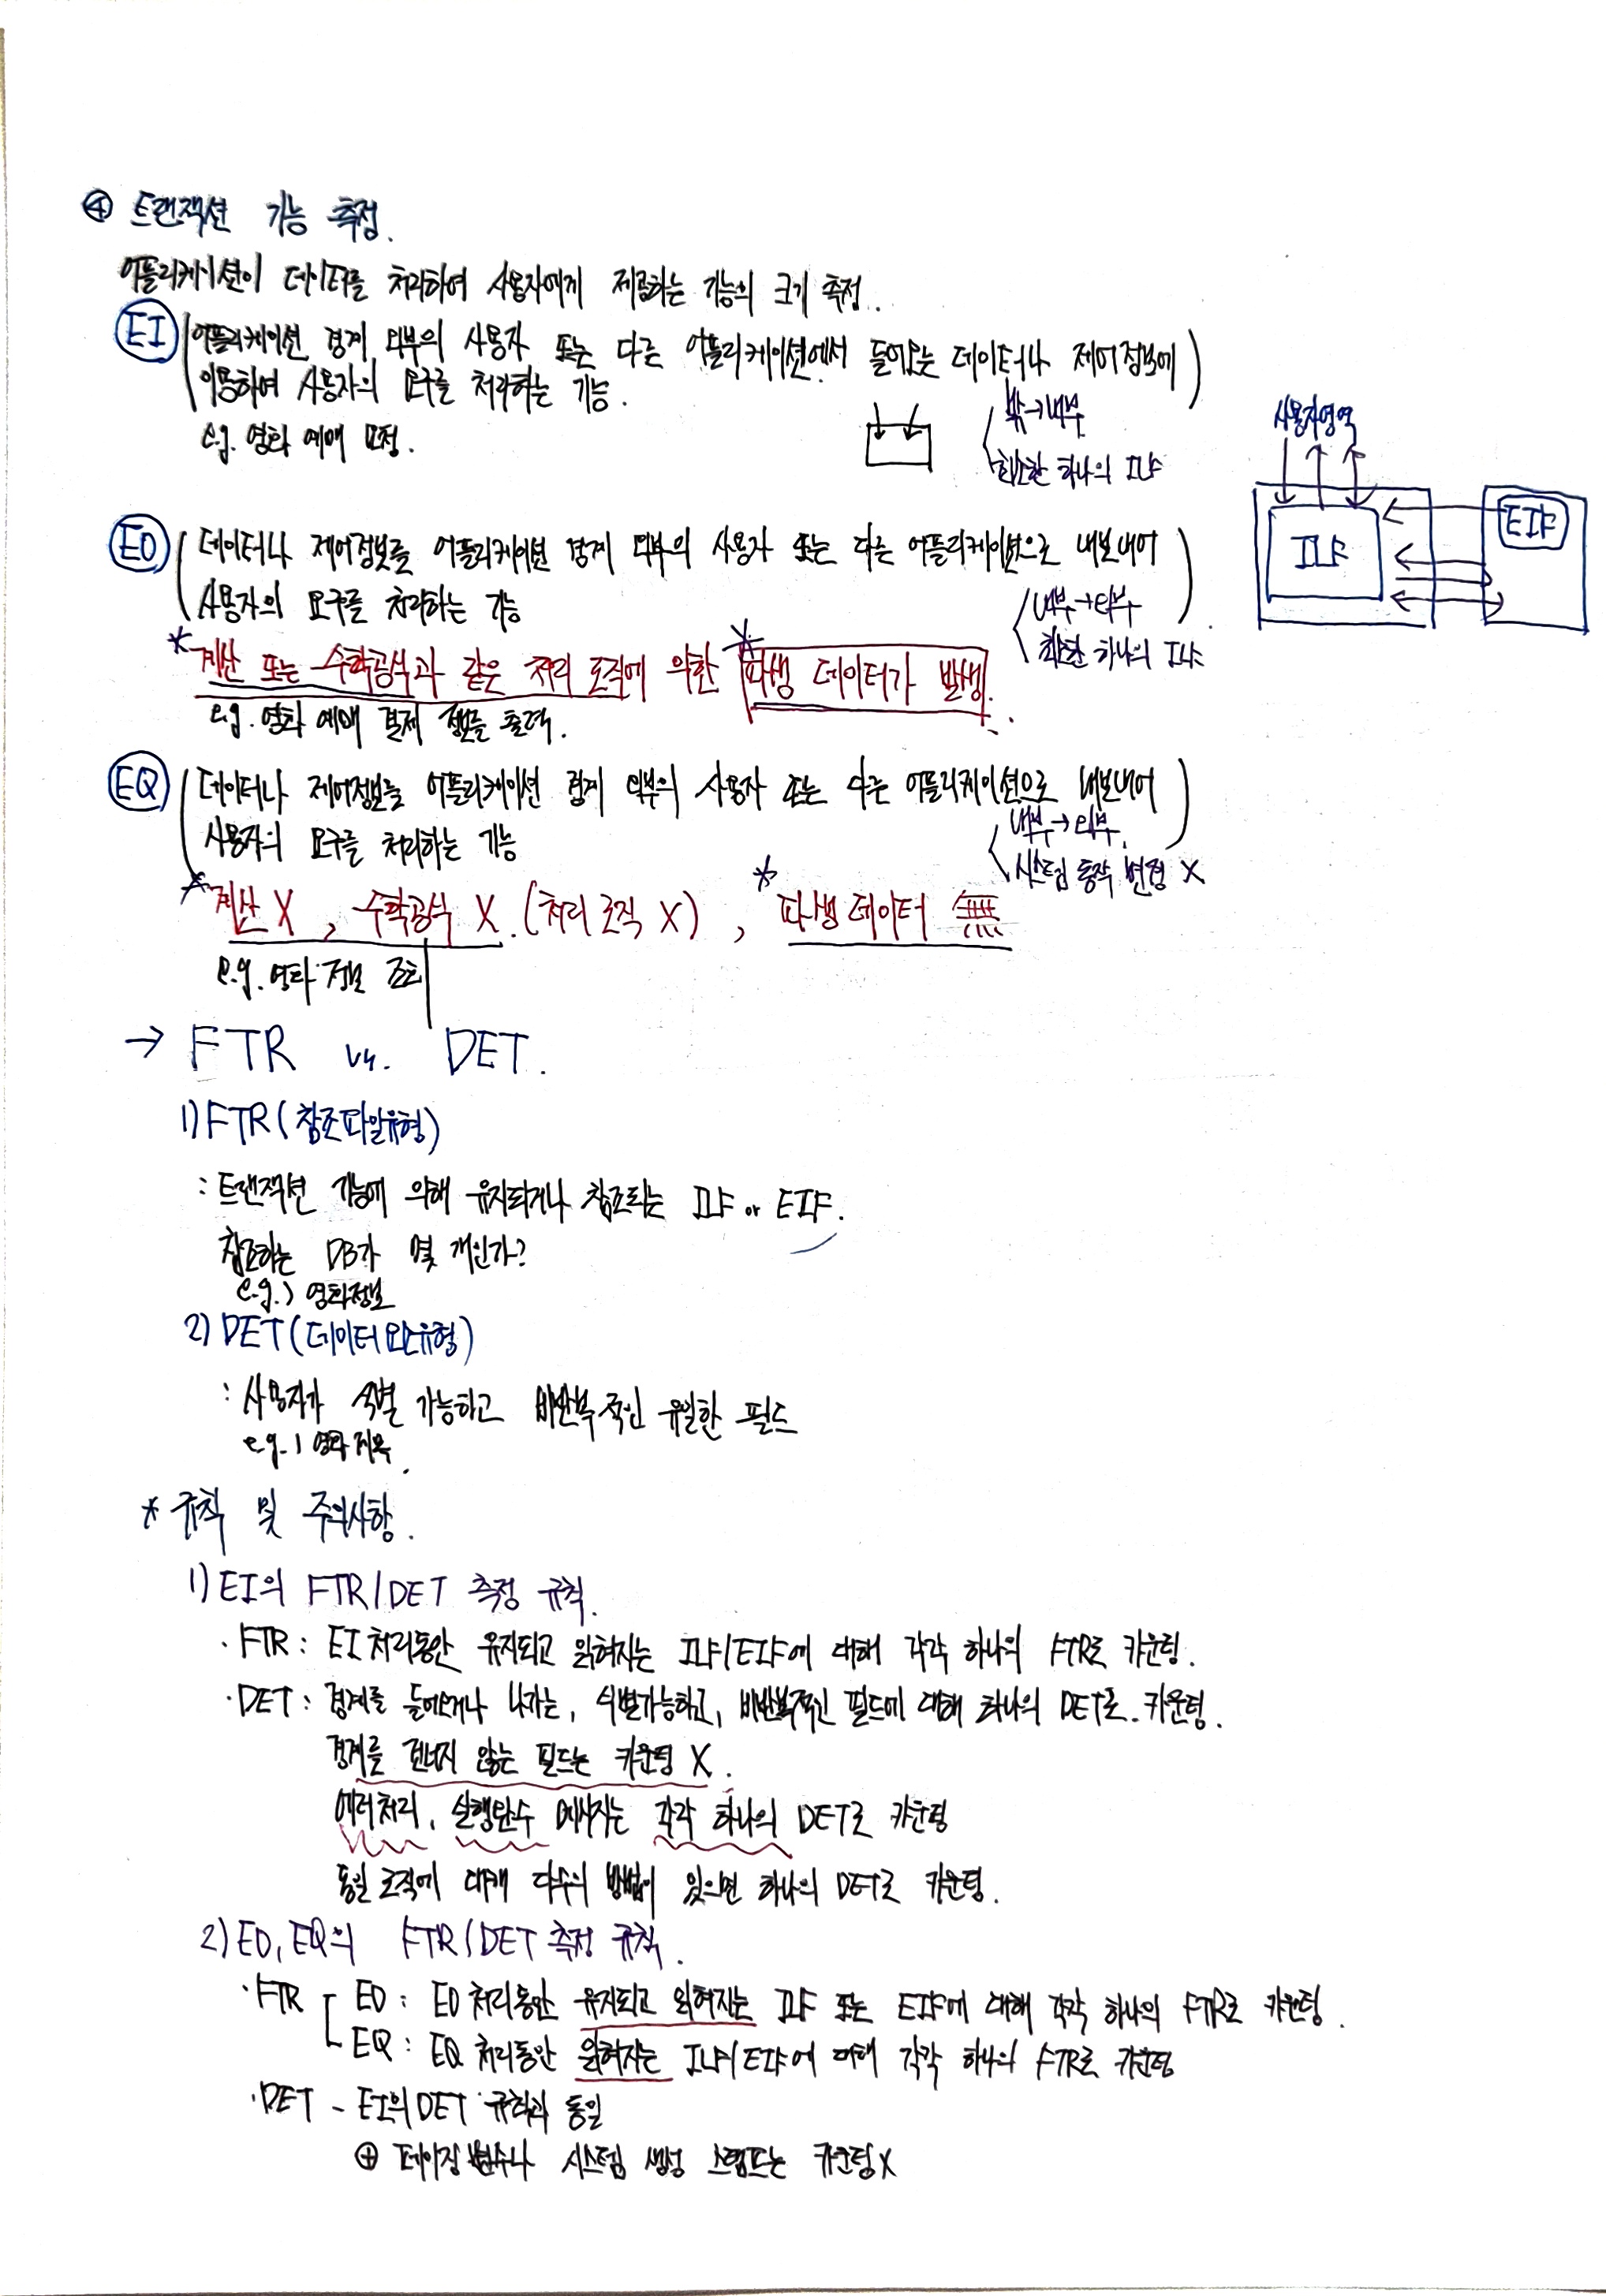 ④ 트랜잭션 기능 측정.
어플리케이션이 데이터를 처리하여 사용자에게 제공하는 기능의 크기 측정.
EI 어플리케이션 경계 외부의 사용자 또는 다른 어플리케이션에서 들어오는 데이터나 제어정보에
이용하여 사용자의 요구를 처리하는 기능.
e.g. 영화 예매 요청.
밖→내부
최소한 하나의 ILF
사용자영역
ILF
EIF
EO 데이터나 제어정보를 어플리케이션 경계 외부의 사용자 또는 다른 어플리케이션으로 내보내어
사용자의 요구를 처리하는 기능
내부→외부
최소한 하나의 ILF
* 계산 또는 수학공식과 같은 처리 로직에 의한 * 파생 데이터가 발생.
e.g. 영화 예매 결제 정보를 출력.
EQ 데이터나 제어정보를 어플리케이션 경계 외부의 사용자 또는 다른 어플리케이션으로 내보내어
사용자의 요구를 처리하는 기능
내부→외부.
시스템 동작 변경 X
* 계산 X, 수학공식 X. (처리 로직 X), * 파생 데이터 無
e.g. 영화 정보 조회
→ FTR vs. DET.
1) FTR (참조파일유형)
: 트랜잭션 기능에 의해 유지되거나 참조되는 ILF or EIF.
참조하는 DB가 몇 개인가?
e.g.) 영화정보
2) DET (데이터요소유형)
: 사용자가 식별 가능하고 비반복적인 유일한 필드
e.g.) 영화제목.
* 규칙 및 주의사항.
1) EI의 FTR/DET 측정 규칙.
· FTR : EI 처리동안 유지되고 읽혀지는 ILF/EIF에 대해 각각 하나의 FTR로 카운팅.
· DET : 경계를 들어오거나 나가는, 식별가능하고, 비반복적인 필드에 대해 하나의 DET로. 카운팅.
경계를 건너지 않는 필드는 카운팅 X.
에러처리, 실행완수 메시지는 각각 하나의 DET로 카운팅
동일 로직에 대해 다수의 방법이 있으면 하나의 DET로 카운팅.
2) EO, EQ의 FTR/DET 측정 규칙.
· FTR EO : EO 처리동안 유지되고 읽혀지는 ILF 또는 EIF에 대해 각각 하나의 FTR로 카운팅.
EQ : EQ 처리동안 읽혀지는 ILF/EIF에 대해 각각 하나의 FTR로 카운팅
· DET - EI의 DET 규칙과 동일
⊕ 페이징 변수나 시스템 생성 스탬프는 카운팅 X